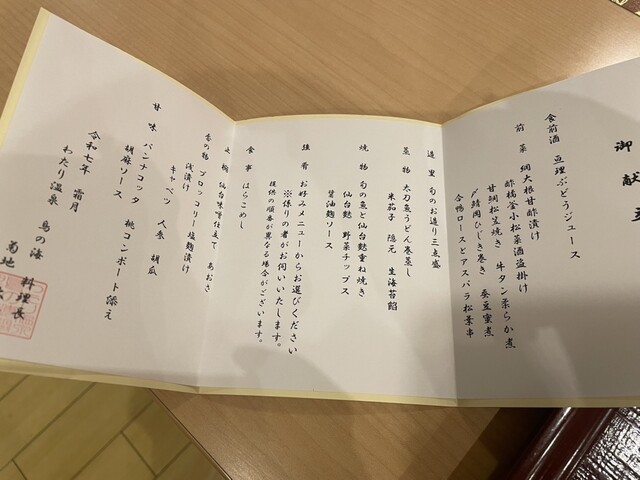 御献立
食前酒 亘理ぶどうジュース
前菜 網大根甘酢漬け
酢橘釜小松菜酒盗掛け
甘鯛松笠焼き 牛タン柔らか煮
〆鯖岡ひじき巻き 蚕豆蜜煮
合鴨ロースとアスパラ松葉串
造里 旬のお造り三点盛
蒸物 太刀魚うどん巻蒸し
米茄子 隠元 生海苔餡
焼物 旬の魚と仙台麩重ね焼き
仙台麩 野菜チップス
醤油麹ソース
強肴 お好みメニューからお選びください
※係りの者がお伺いいたします。
提供の順番が異なる場合がございます。
食事 はらこめし
止椀 仙台味噌仕立て あおさ
香の物 ブロッコリー塩麹漬け
浅漬け
キャベツ 人参 胡瓜
甘味 パンナコッタ 桃コンポート添え
胡麻ソース
令和七年 霜月
わたり温泉 鳥の海 料理長
菊地